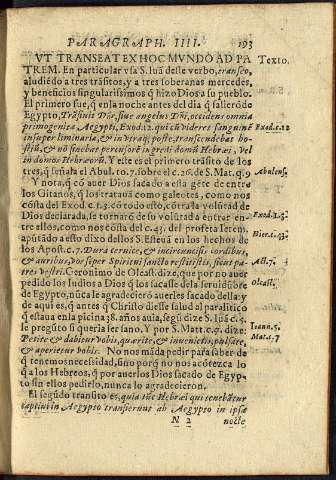 PARAGRAPH. IIII. 193
VT TRANSEAT EX HOC MVNDO AD PA Texto.
TREM. En particular vsa S. Iuā deste verbo, transeo,
aludiēdo a tres trāsitos, y a tres soberanas mercedes,
y beneficios singularissimos q̄ hizo Dios a su pueblo.
El primero fue, q̄ en la noche antes del dia q̄ salierō de
Egypto, Trāsiuit Dn̄s, siue angelus Dn̄i, occidens omnia
primogenita Aegypti, Exod.12. qui cū videret sanguinē Exod.c.12
in super liminaria, & in vtraq; poste, transcendebat ho-
stiū, & nō sinebat percussorē ingredi domū Hebraei, vel
in domos Hebraeorū. Y este es el primero trāsito de los
tres, q̄ señala el Abul. to.7. sobre el c.26. de S. Mat. q.9 Abulens.
Y nota, q̄ cō auer Dios sacado a esta gēte de entre
los Gitanos, q̄ los tratauā como galeotes, como nos
costa del Exod. c.1.3. cō todo esto, cōtra la volūtad de
Dios declarada, se tornarō de su volūtad a entrar en- Exod.1.3.
tre ellos, como nos costa del c.43. del profeta Ierem. Hier.c.43.
aputādo a esto dixo dellos S. Esteuā en los hechos de
los Apost. c.7. Dura ceruice, & incircuncisis cordibus,
& auribus, vos semper Spiritui sancto restitistis, sicut pa- Act.7.
tres vestri. Geronimo de Oleast. dize, que por no auer
pedido los Iudios a Dios q̄ los sacasse de la seruidūbre Oleast.
de Egypto, nūca le agradecierō auerles sacado della: y
de aqui es, q̄ antes q̄ Christo diesse salud al paralitico
q̄ estaua en la picina 38. años auia, segū dize S. Iuā c.5. Ioann.5.
le pregūto si queria ser sano. Y por S. Matt. c.7. dize: Mat.c.7
Petite & dabitur vobis, quærite, & inuenietis, pulsate,
& aperietur vobis. No nos māda pedir para saber de
q̄ tenemos necessidad, sino porq̄ no nos acōtezca lo
q̄ a los Hebreos, q̄ por auerlos Dios sacado de Egyp-
to sin ellos pedirlo, nunca lo agradecieron.
El segūdo transito es, quia tūc Hebraei qui tenebātur
captiui in Aegypto transierunt ab Aegypto in ipsa
N 2 nocte